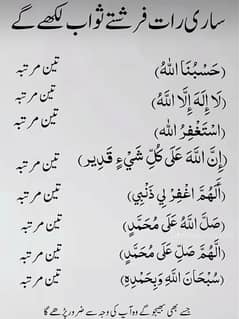 ساری رات فرشتے ثواب لکھے گے
(حَسْبُنَا اللهُ) تین مرتبہ
(لَا إِلٰهَ إِلَّا اللَّهُ) تین مرتبہ
(اسْتَغْفِرُ الله) تین مرتبہ
(إِنَّ اللهَ عَلَى كُلِّ شَيْءٍ قَدِير) تین مرتبہ
(أَلَّهُمَّ اغْفِرْ لِي ذَنْبِي) تین مرتبہ
(صَلَ اللَّهُ عَلَى مُحَمَّدٍ) تین مرتبہ
(الَّهُمَّ صَلِّ عَلَى مُحَمَّدٍ) تین مرتبہ
(سُبْحَانَ اللَّهِ وَبِحَمْدِهِ) تین مرتبہ
جسے بھی بھیجو گے وہ آپ کی وجہ سے ضرور پڑھے گا